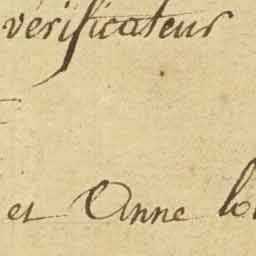 vérificateur
et Anne